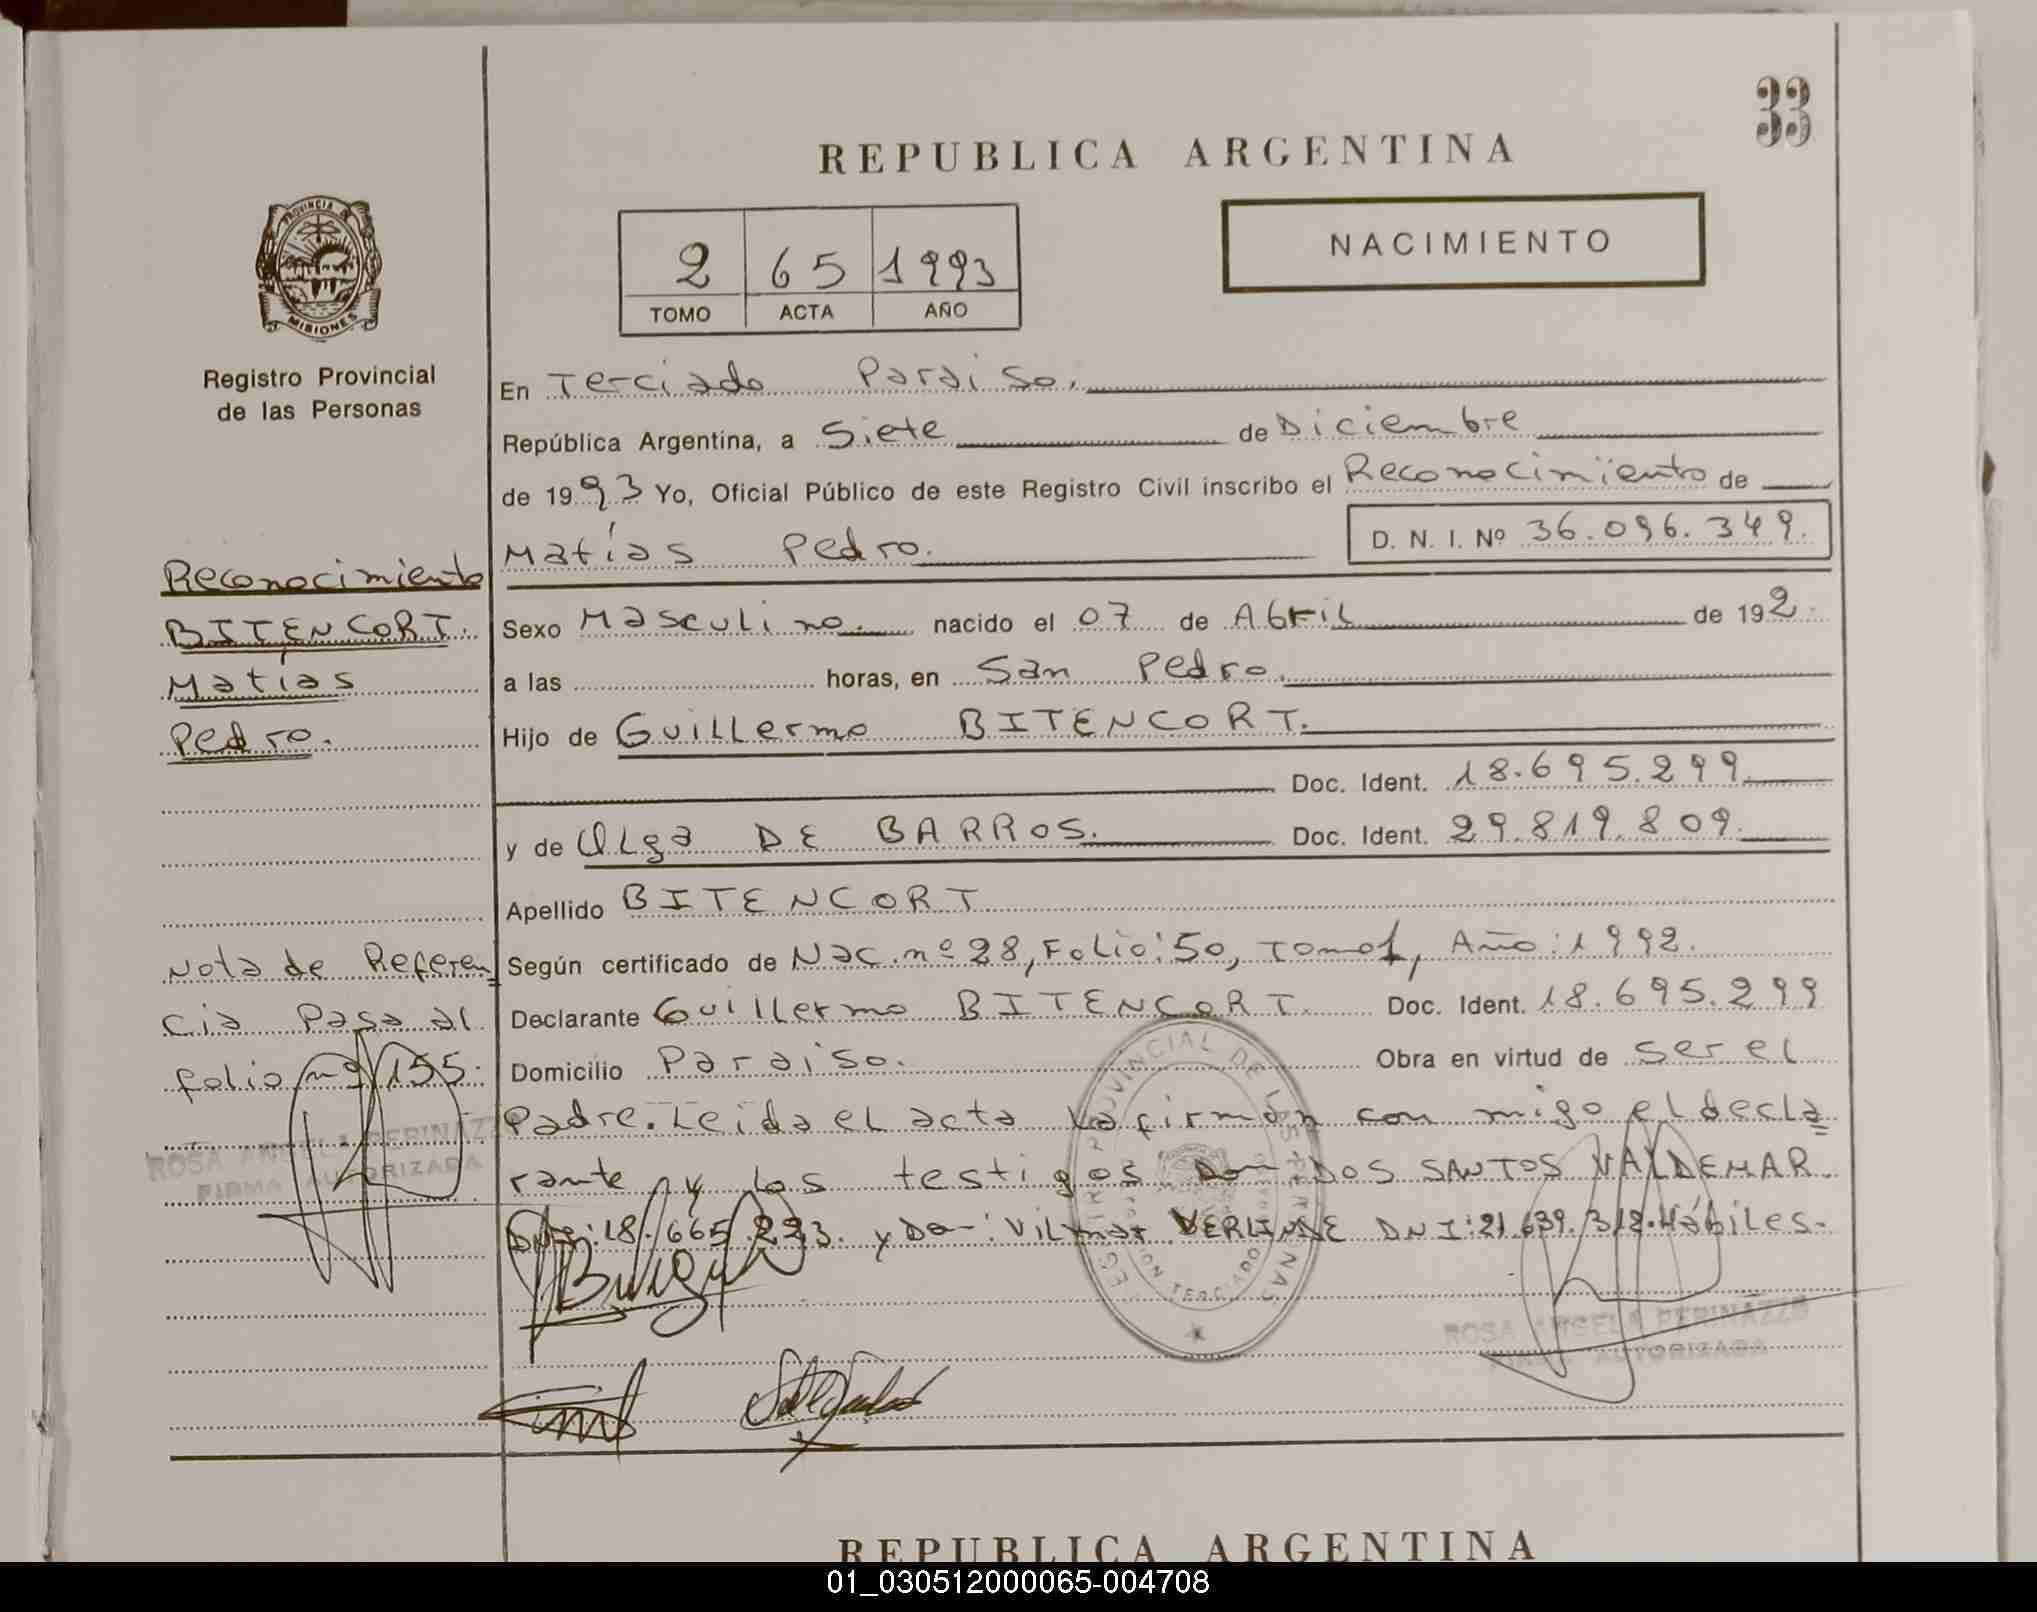 33
REPUBLICA ARGENTINA
PROVINCIA DE
MISIONES
Registro Provincial
de las Personas
2 65 1993
TOMO ACTA AÑO
NACIMIENTO
En Terciado Paraiso.
República Argentina, a Siete de Diciembre
de 1993 Yo, Oficial Público de este Registro Civil inscribo el Reconocimiento de
Matías Pedro. D. N. I. Nº 36.096.349.
Sexo Masculino. nacido el 07 de Abril de 192.
a las horas, en San Pedro.
Hijo de Guillermo BITENCORT.
Doc. Ident. 18.695.299
y de Olga DE BARROS. Doc. Ident. 29.819.809
Apellido BITENCORT
Según certificado de Nac. nº 28, Folio: 50, Tomo 1, Año: 1992.
Declarante Guillermo BITENCORT. Doc. Ident. 18.695.299
Domicilio Paraiso. Obra en virtud de ser el
Padre. Leida el acta la firman con migo el decla
rante y los testigos Don DOS SANTOS VALDEMAR
DNI: 18.665.223. y Don: Vilmar DNI: 21.639.312. Hábiles.
Reconocimiento
BITENCORT.
Matías
Pedro.
Nota de Referen
cia Pasa al
folio nº 155.
ROSA ANGELA PERINAZZO
FIRMA AUTORIZADA
REGISTRO PROVINCIAL DE LAS PERSONAS
ROSA ANGELA PERINAZZO
FIRMA AUTORIZADA
REPUBLICA ARGENTINA
01_030512000065-004708